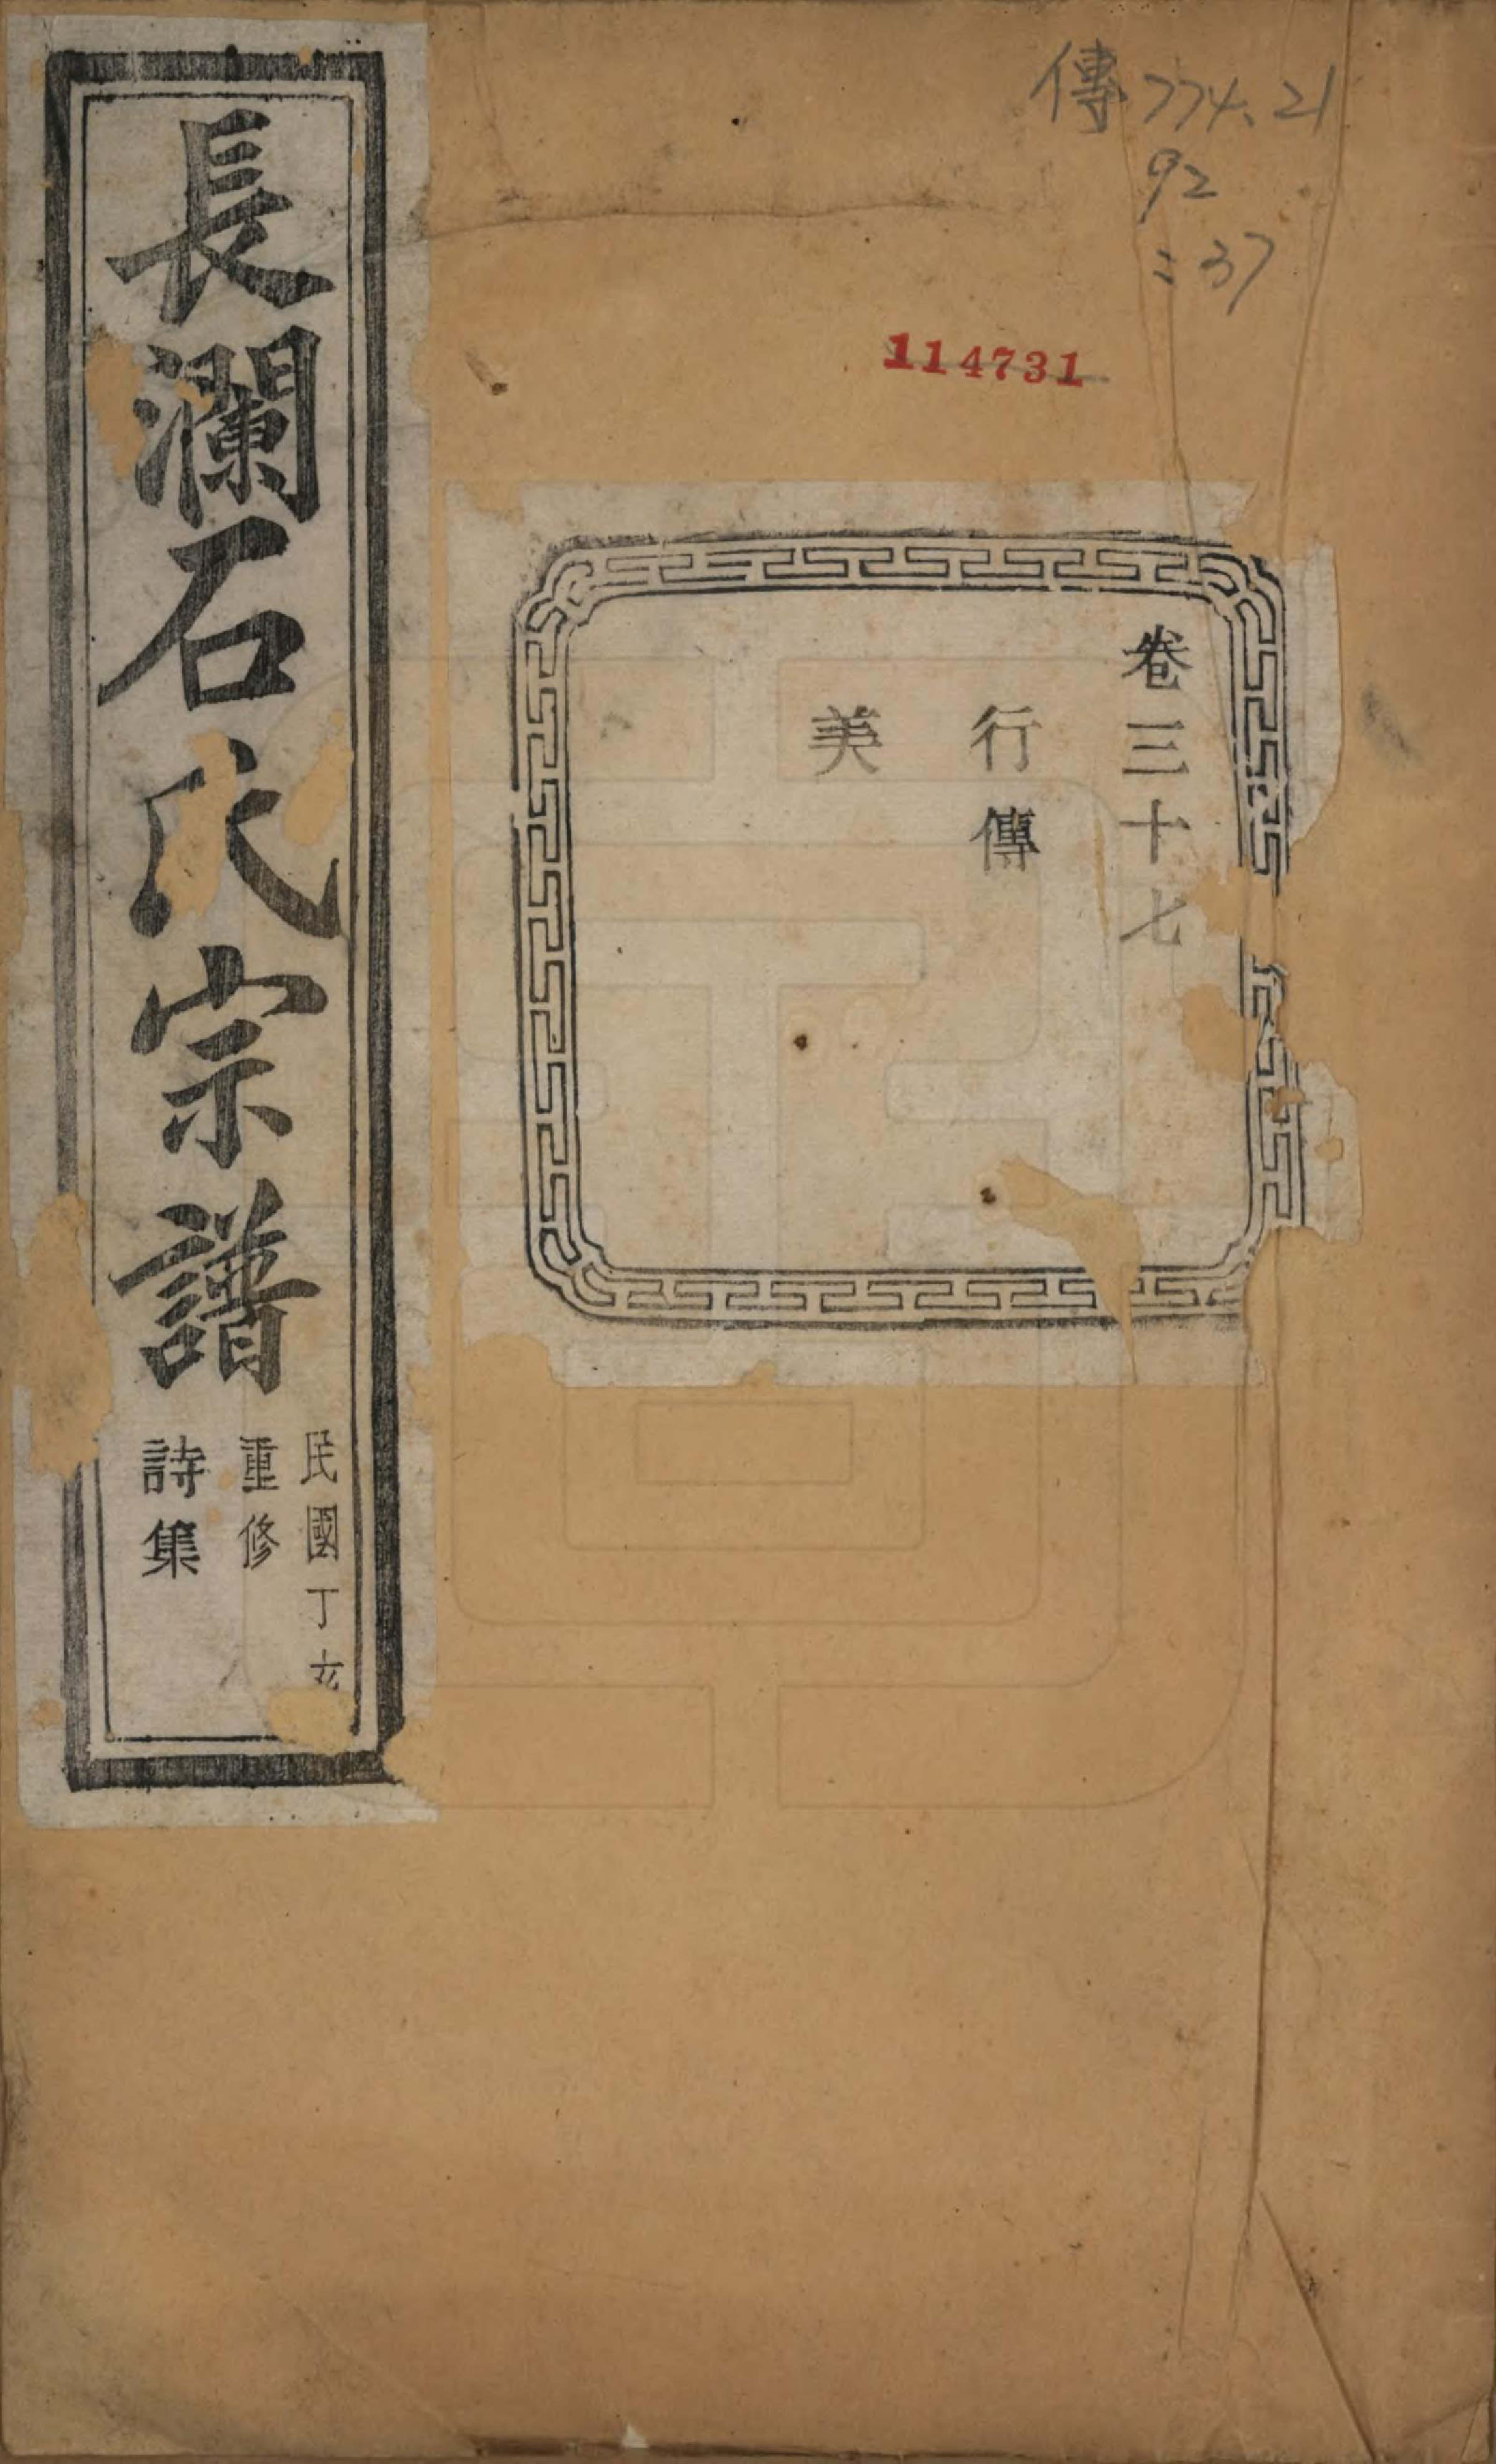 傳774.21
92
:37
114731
卷三十七
行傳
美
長瀾石氏宗譜
民國丁亥
重修
詩集